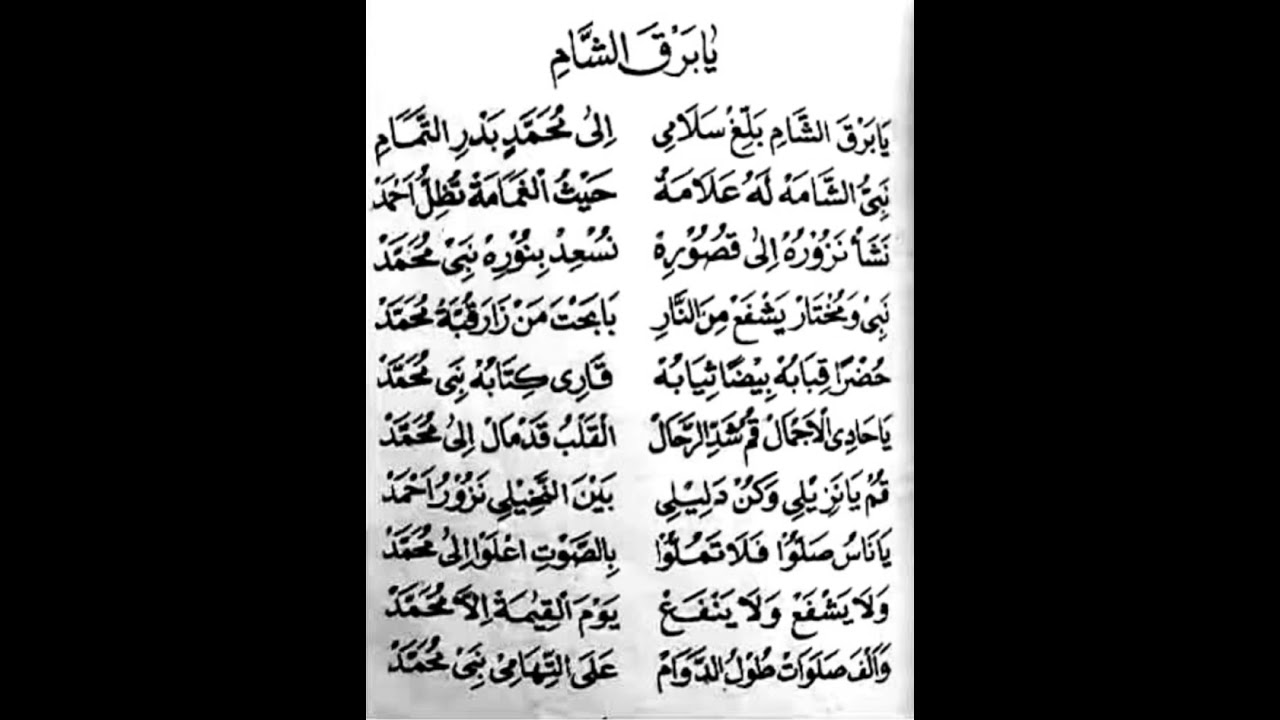 يَابَرْقَ الشَّامِ
يَابَرْقَ الشَّامِ بَلِّغْ سَلَامِى اِلىٰ مُحَمَّدٍ بَدْرِ التَّمَامِ
نَبِىُّ الشَّامَهْ لَهُ عَلَامَهْ حَيْثُ الْغَمَامَةْ تُظِلُّ اَحْمَدْ
نَشَأْ نَزُوْرُهْ اِلىٰ قُصُوْرِهْ نُسْعِدْ بِنُوْرِهْ نَبِىْ مُحَمَّدْ
نَبِىْ وَمُخْتَارْ يَشْفَعْ مِنَ النَّارِ يَابَخْتَ مَنْ زَارَ قُبَّةُ مُحَمَّدْ
حُضْرًا قِبَابُهْ بِيْضًا ثِيَابُهْ قَارِى كِتَابُهْ نَبِى مُحَمَّدْ
يَاحَادِى الْاَجْمَالْ قُمْ شُدِّ الرَّحَالْ الْقَلْبُ قَدْ مَالْ اِلىٰ مُحَمَّدْ
قُمْ يَانَزِيْلِى وَكُنْ دَلِيْلِى بَيْنَ النَّخِيْلِى نَزُوْرُ اَحْمَدْ
يَانَاسُ صَلُّوْا فَلَا تَمُلُّوْا بِالصَّوْتِ اعْلَوْا اِلىٰ مُحَمَّدْ
وَلَا يَشْفَعْ وَلَا يَنْفَعْ يَوْمَ الْقِيٰمَةْ اِلَّا مُحَمَّدْ
وَاَلْفَ صَلَوَاتْ طُوْلُ الدَّوَامْ عَلَى التِّهَامِىْ نَبِىْ مُحَمَّدْ